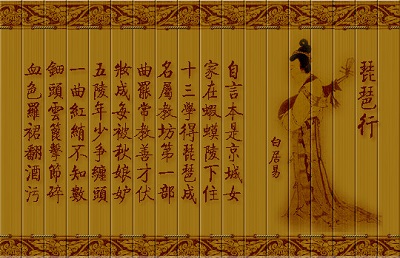 琵琶行
白居易
自言本是京城女
家在蝦蟆陵下住
十三學得琵琶成
名屬教坊第一部
曲罷常教善才伏
妝成每被秋娘妒
五陵年少爭纏頭
一曲紅綃不知數
鈿頭雲篦擊節碎
血色羅裙翻酒污